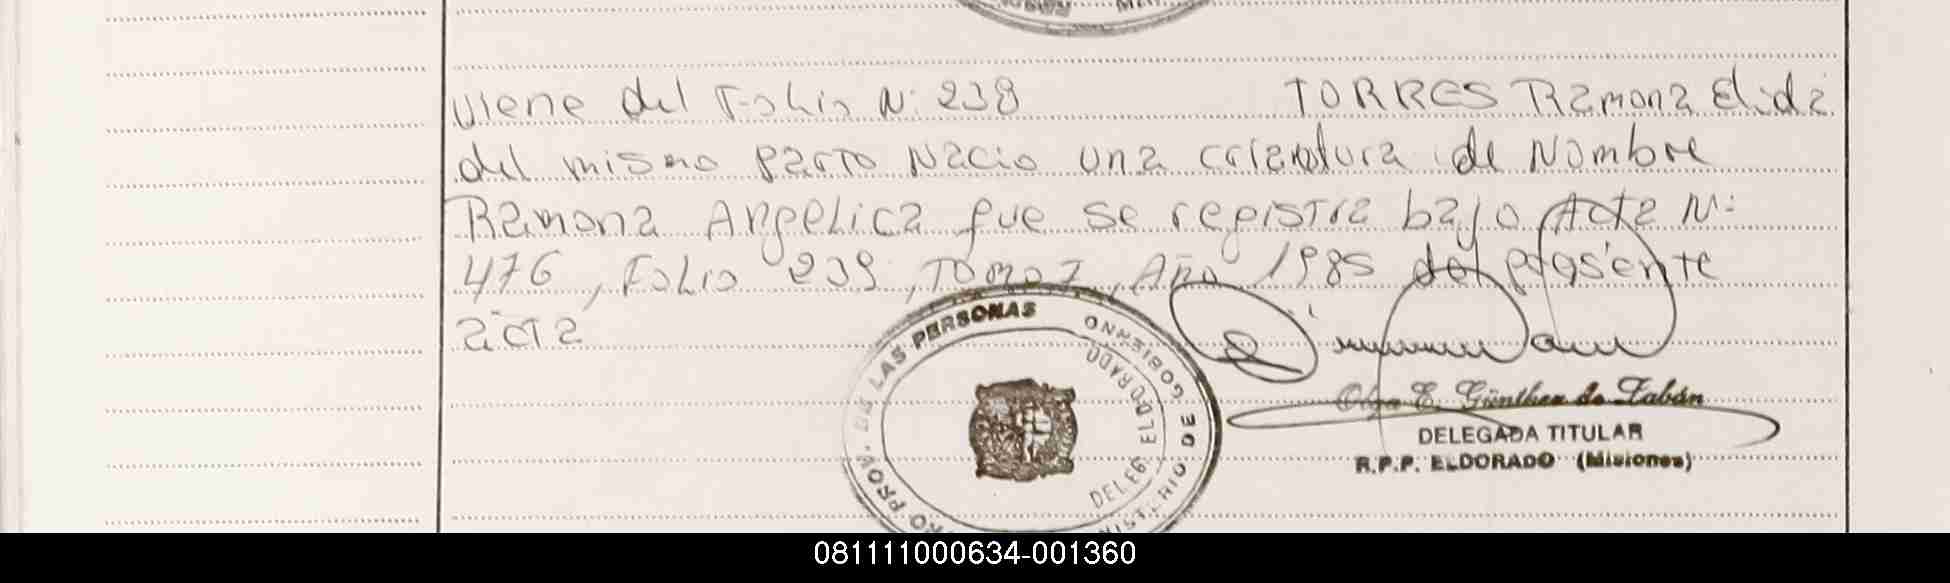 Viene del Folio N: 238 TORRES Ramona Elida
del mismo parto Nacio una criatura de Nombre
Ramona Angelica que se registra bajo Acta N:
476, Folio 239, Tomo I, Año 1985 del presente
acta
RO PROV. DE LAS PERSONAS
NISTERIO DE GOBIERNO
DELEG ELDORADO
Olga E. Günther de Zabán
DELEGADA TITULAR
R.P.P. ELDORADO (Misiones)
081111000634-001360